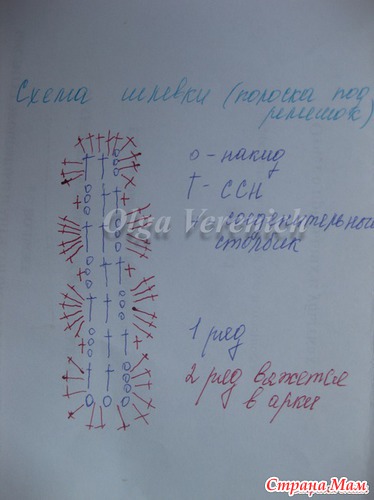 Схема шлевки (полоска под
ремешок)
о - накид
† - ССН
Olga Verenich
соединительный
столбик
1 ряд
2 ряд вяжется
в арки
Страна Мам